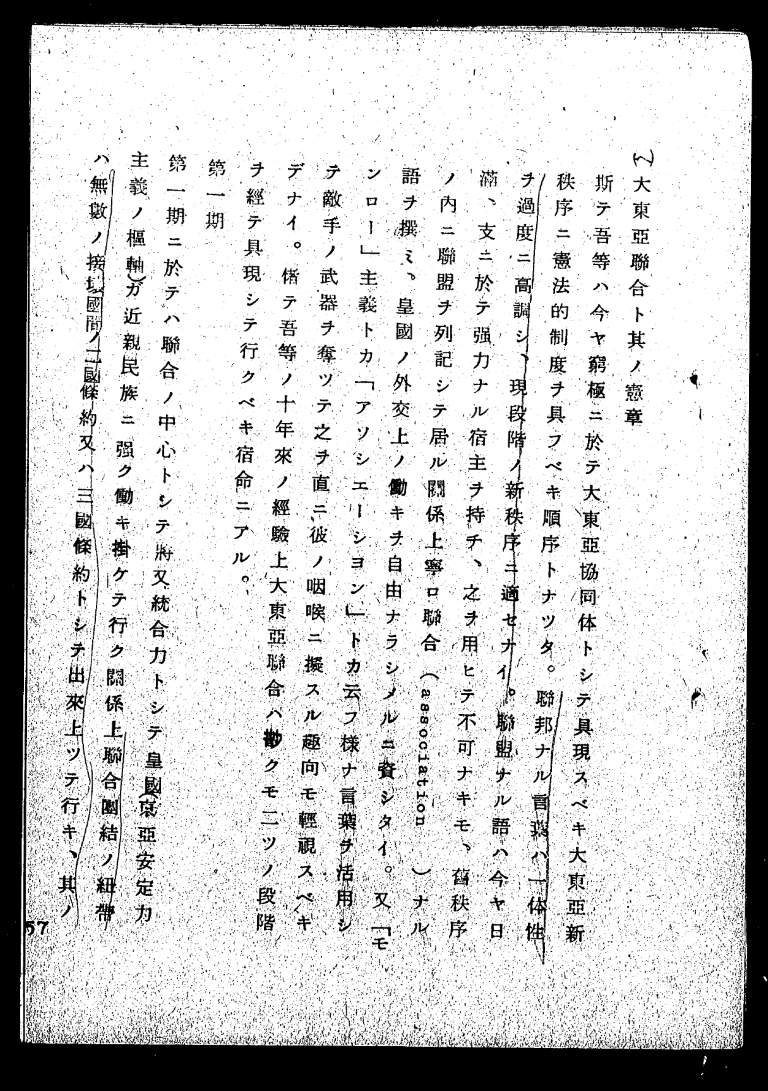 大東亞聯合ト其ノ憲章
斯テ吾等ハ今ヤ窮極ニ於テ大東亞協同体トシテ具現スベキ大東亞新
秩序ニ憲法的制度ヲ具フベキ順序トナツタ。聯邦ナル言葉ハ一体性
ヲ過度ニ高調シ、現段階ノ新秩序ニ適セナイ。聯盟ナル語ハ今ヤ日
滿、支ニ於テ强力ナル宿主ヲ持チ、之ヲ用ヒテ不可ナキモ、舊秩序
ノ内ニ聯盟ヲ列記シテ居ル關係上寧ロ聯合(association)ナル
語ヲ撰ミ、皇國ノ外交上ノ働キヲ自由ナラシメルニ資シタイ。又「モ
ンロー」主義トカ「アソシエーシヨン」トカ云フ樣ナ言葉ヲ活用シ
テ敵手ノ武器ヲ奪ツテ之ヲ直ニ彼ノ咽喉ニ擬スル趣向モ輕視スベキ
デナイ。偖テ吾等ノ十年來ノ經驗上大東亞聯合ハ尠クモ二ツノ段階
ヲ經テ具現シテ行クベキ宿命ニアル。
第一期
第一期ニ於テハ聯合ノ中心トシテ將又統合力トシテ皇國(東亞安定力
主義ノ樞軸)ガ近親民族ニ强ク働キ掛ケテ行ク關係上聯合團結ノ紐帶
ハ無數ノ接壤國間ノ二國條約又ハ三國條約トシテ出來上ツテ行キ、其ノ
57